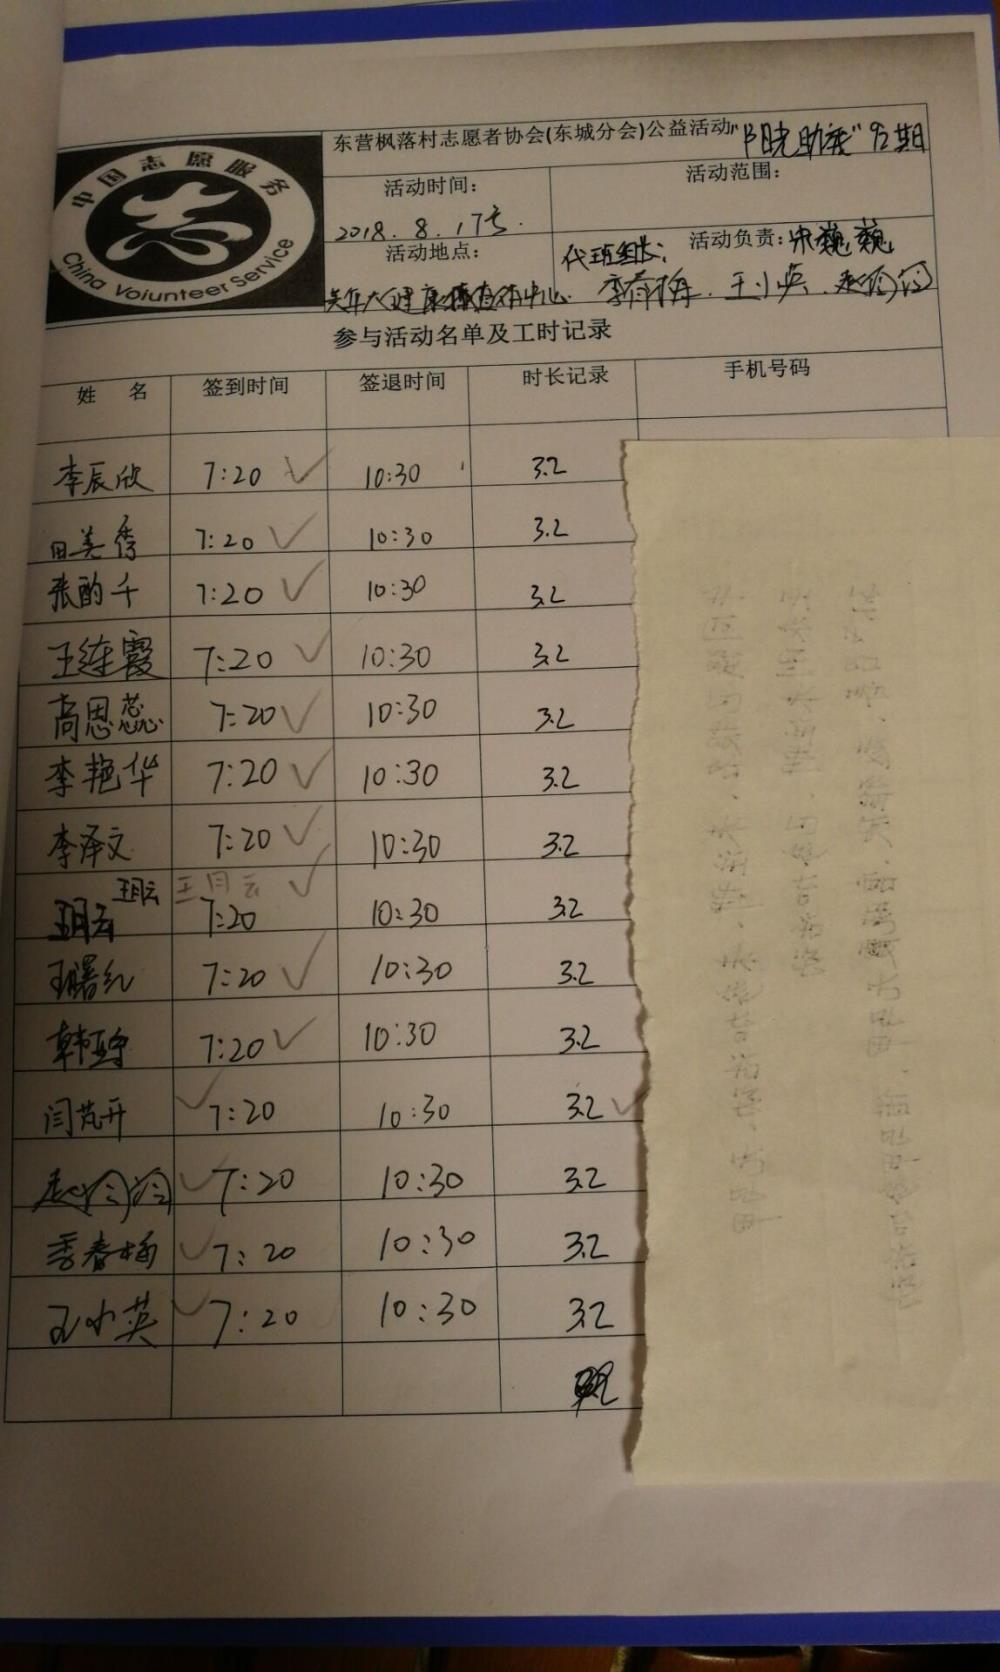 中国志愿服务
China Voiunteer Service
东营枫落村志愿者协会(东城分会)公益活动"阳光助残"92期
活动时间：
活动范围：
2018.8.17号.
活动地点：
代班组长：
活动负责：宋巍巍
美年大健康体检中心
李春梅、王小英、赵伶伶
参与活动名单及工时记录
姓 名 签到时间 签退时间 时长记录 手机号码
李辰欣 7:20 10:30 3.2
田美秀 7:20 10:30 3.2
张酌千 7:20 10:30 3.2
王连霞 7:20 10:30 3.2
高恩蕊 7:20 10:30 3.2
李艳华 7:20 10:30 3.2
李泽文 7:20 10:30 3.2
王月云 王月云
王月云 7:20 10:30 3.2
王曙红 7:20 10:30 3.2
7:20 10:30 3.2
闫芃开 7:20 10:30 3.2
赵伶伶 7:20 10:30 3.2
李春梅 7:20 10:30 3.2
王小英 7:20 10:30 3.2